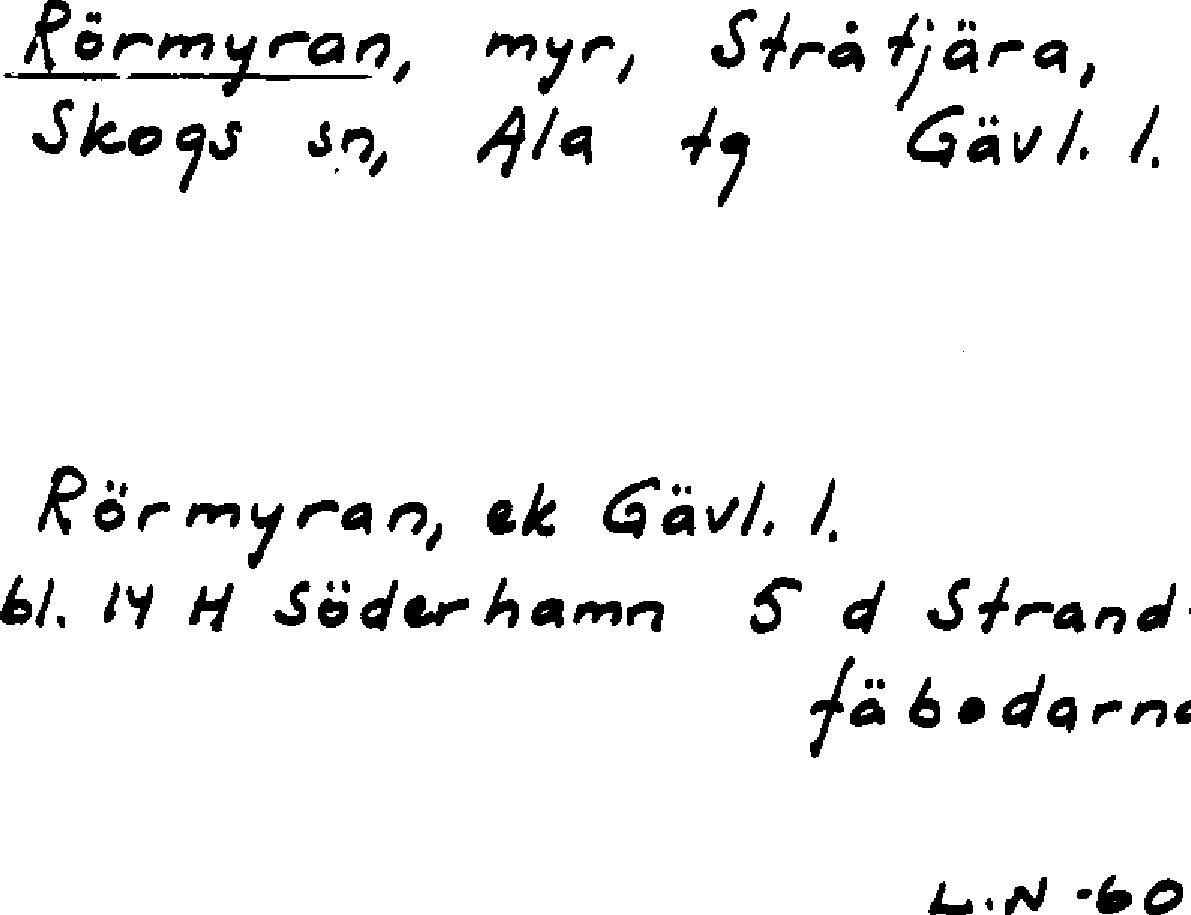 Rörmyran, myr, Stråtjära,
Skogs sn, Ala tg Gävl. l.
Rörmyran, ek Gävl. l.
bl. 14 H Söderhamn 5 d Strand-
fäbodarna
L.N -60